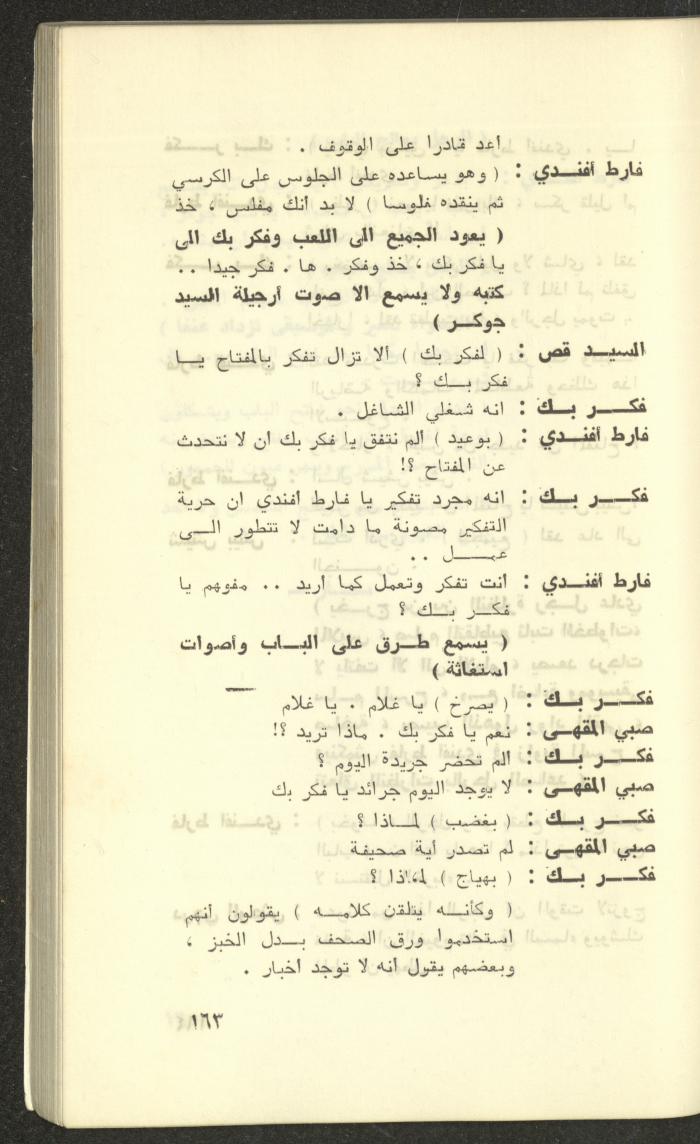 أعد قادرا على الوقوف .
فارط أفنـدي : ( وهو يساعده على الجلوس على الكرسي
ثم ينقده فلوسا ) لا بد أنك مفلس ، خذ
( يعود الجميع الى اللعب وفكر بك الى
يا فكر بك ، خذ وفكر . ها . فكر جيدا ..
كتبه ولا يسمع الا صوت أرجيلة السيد
جوكـر )
السيـد قص : ( لفكر بك ) ألا تزال تفكر بالمفتاح يـا
فكر بـك ؟
فكـــر بــك : انه شغلي الشاغل .
فارط أفنـدي : ( بوعيد ) ألم نتفق يا فكر بك ان لا نتحدث
عن المفتاح ؟!
فكـــر بــك : انه مجرد تفكير يا فارط أفندي ان حرية
التفكير مصونة ما دامت لا تتطور الــى
عمــــل ..
فارط أفنـدي : أنت تفكر وتعمل كما أريد .. مفهوم يا
فكــر بــك ؟
( يسمع طـرق على البـاب وأصوات
استغاثة )
فكـــر بــك : ( يصرخ ) يا غلام . يا غلام
صبي المقهـى : نعم يا فكر بك . ماذا تريد ؟!
فكـــر بــك : ألم تحضر جريدة اليوم ؟
صبي المقهـى : لا يوجد اليوم جرائد يا فكر بك
فكـــر بــك : ( بغضب ) لمـاذا ؟
صبي المقهـى : لم تصدر أية صحيفة
فكـــر بــك : ( بهياج ) لماذا ؟
( وكأنـه يتلقن كلامـه ) يقولون أنهم
استخدموا ورق الصحف بـدل الخبز ،
وبعضهم يقول أنه لا توجد أخبار .
١٦٣